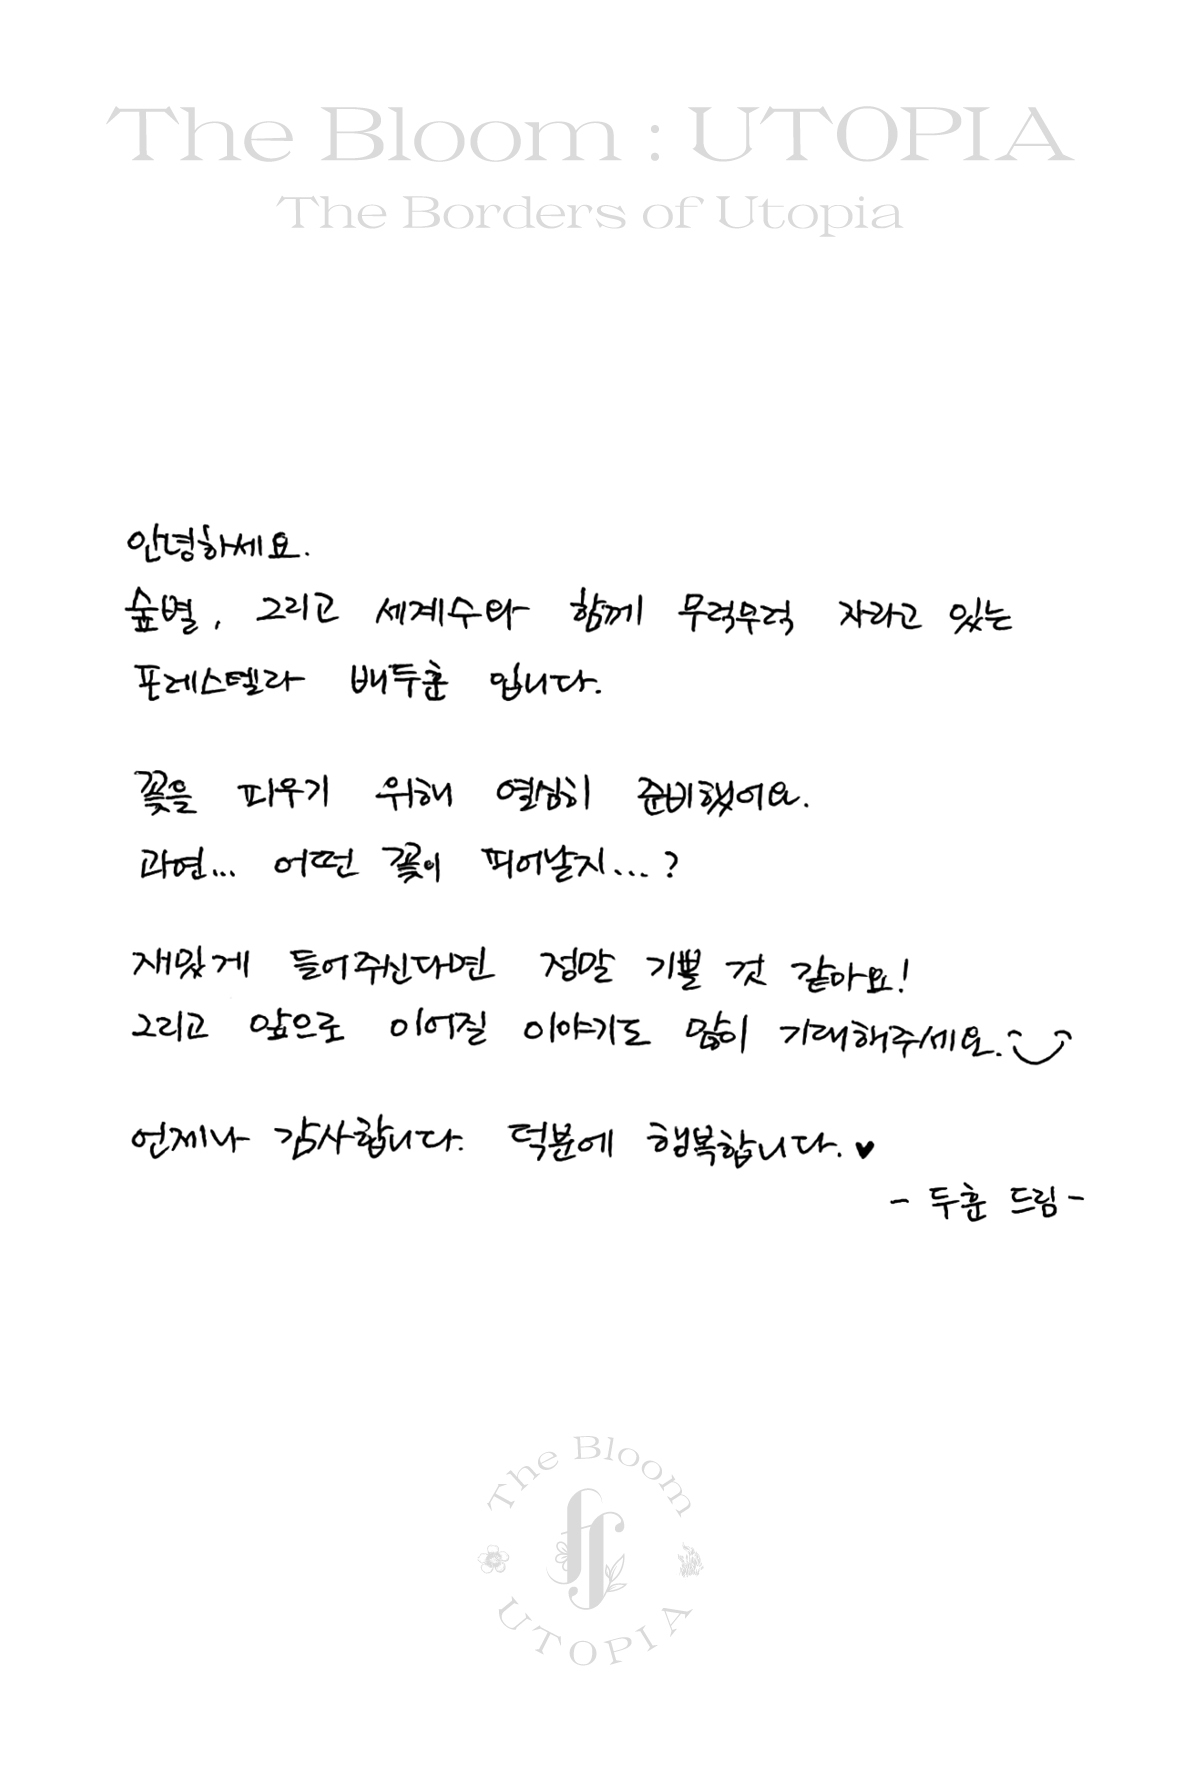 The Bloom : UTOPIA
The Borders of Utopia
안녕하세요.
숲별, 그리고 세계수와 함께 무럭무럭 자라고 있는
포레스텔라 배두훈 입니다.
꽃을 피우기 위해 열심히 준비했어요.
과연... 어떤 꽃이 피어날지...?
재밌게 들어주신다면 정말 기쁠 것 같아요!
그리고 앞으로 이어질 이야기도 많이 기대해주세요.
언제나 감사합니다. 덕분에 행복합니다.♥
- 두훈 드림 -
The Bloom
UTOPIA